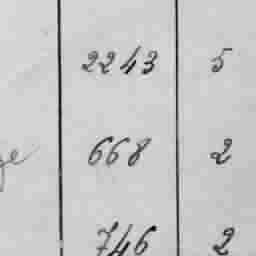 2243 5
668 2
746 2